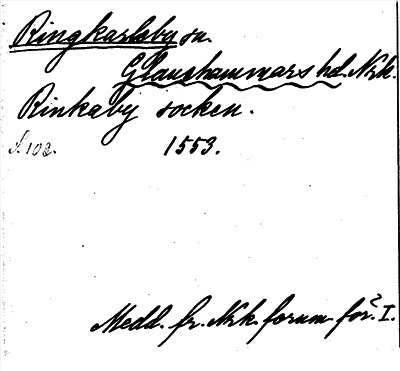 Ringkarlaby sn.
Glanshammars hd. Nrk.
Rinkaby socken.
S. 102. 1553.
Medd. fr. Nrk. fornm.för. I.